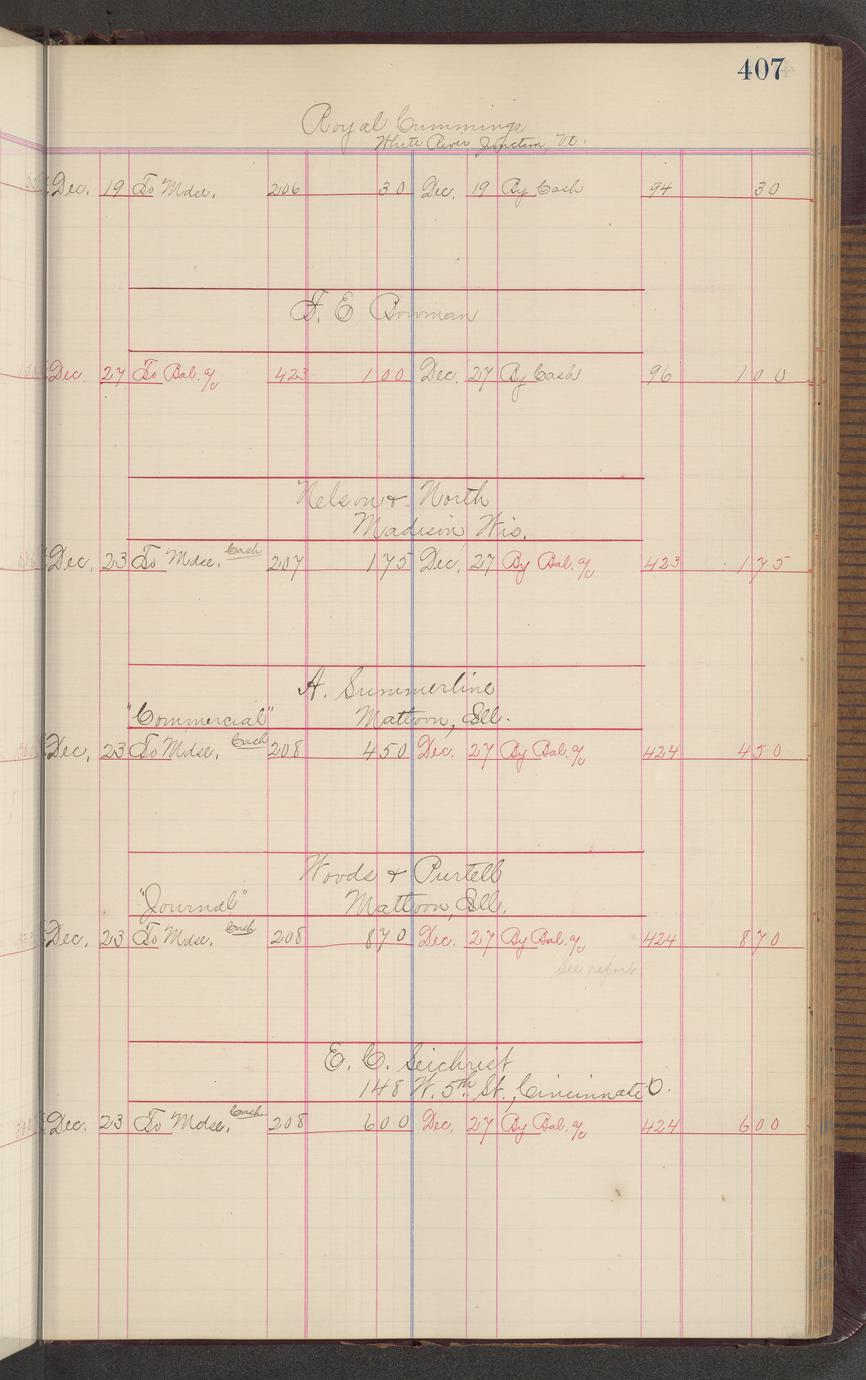 407
Royal Cummings
White River Junction, Vt.
Dec. 19 To Mdse. 206 30 Dec. 19 By Cash 94 30
F. E. Bowman
Dec. 27 To Bal. a/c 423 100 Dec. 27 By Cash 96 100
Nelson & North
Madison Wis.
Dec. 23 To Mdse. Cash 207 175 Dec. 27 By Bal. a/c 423 175
A. Summerline
"Commercial" Mattoon, Ill.
Dec. 23 To Mdse. Cash 208 450 Dec. 27 By Bal. a/c 424 450
Woods & Purtell
"Journal" Mattoon, Ill.
Dec. 23 To Mdse. Cash 208 870 Dec. 27 By Bal. a/c 424 870
See
E. C. Seichrist
148 W. 5th St., Cincinnati O.
Dec. 23 To Mdse. Cash 208 600 Dec. 27 By Bal. a/c 424 600